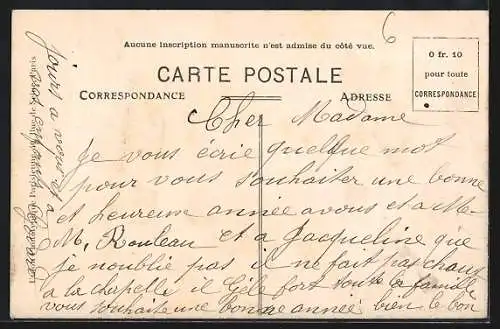 6
Aucune inscription manuscrite n'est admise du côté vue.
0 fr. 10
pour toute
CORRESPONDANCE
CARTE POSTALE
CORRESPONDANCE
ADRESSE
Cher Madame
Je vous écrie quelque mot
pour vous souhaiter une bonne
et heureuse année a vous et a M.
M. Rouleau et a Jacqueline que
je noublie pas il ne fait pas chaus
a la chapelle il Gèle fort toute la famille
vous souhaite une bonne année bien le bon
jours a vous et a